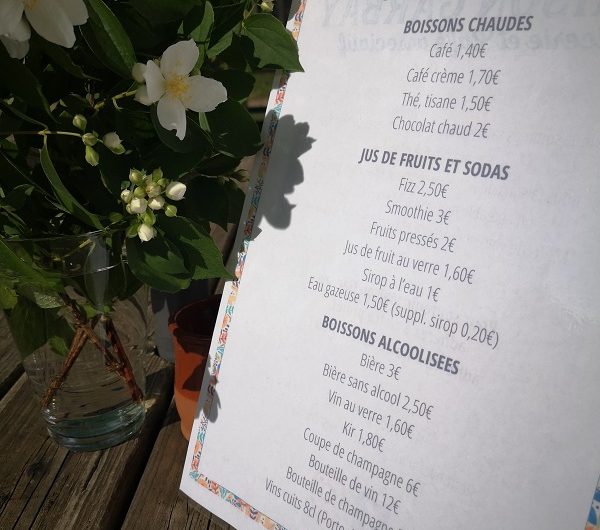 BOISSONS CHAUDES
Café 1,40€
Café crème 1,70€
Thé, tisane 1,50€
Chocolat chaud 2€
JUS DE FRUITS ET SODAS
Fizz 2,50€
Smoothie 3€
Fruits pressés 2€
Jus de fruit au verre 1,60€
Sirop à l'eau 1€
Eau gazeuse 1,50€ (suppl. sirop 0,20€)
BOISSONS ALCOOLISEES
Bière 3€
Bière sans alcool 2,50€
Vin au verre 1,60€
Kir 1,80€
Coupe de champagne 6€
Bouteille de vin 12€
Bouteille de champagne
Vins cuits 8cl (Porto,